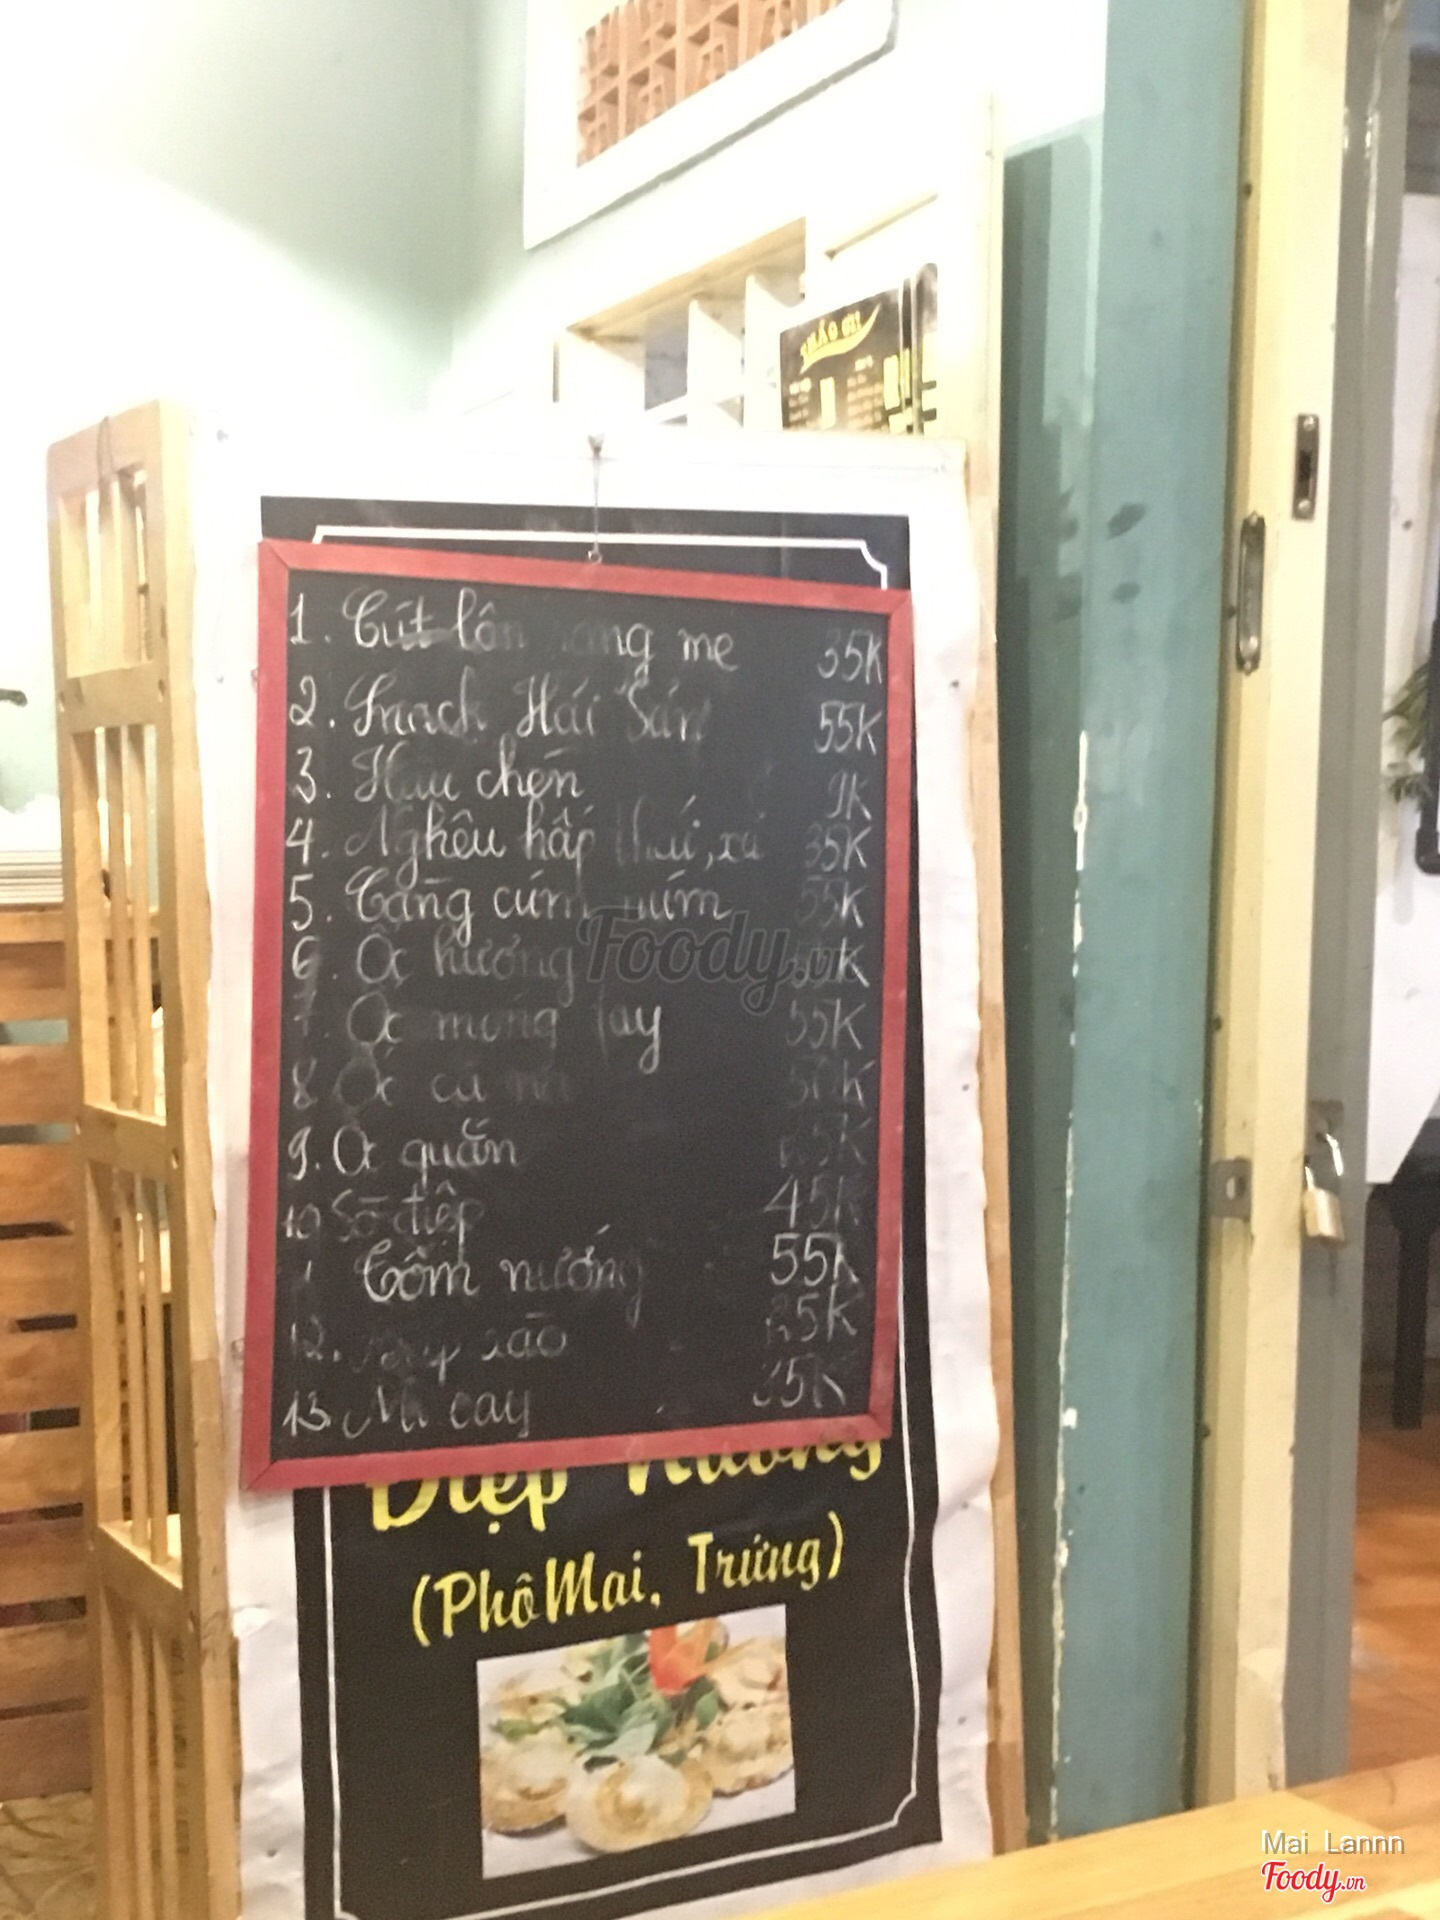 1. Cút lộn rang me 35K
2. Snack Hải Sản 55K
3. Hàu chén 9K
4. Nghêu hấp thái, xả 35K
5. Càng cúm núm 55K
6. Ốc hương K
7. Ốc móng tay 55K
8 Ốc cà na 50K
9. Ốc quắn 5K
10 Sò điệp 45K
Gồm nướng 55K
12. xào 5K
13. Mì cay 35K
Điệp Nướng
(PhôMai, Trứng)
Foody.vn
Mai Lannn
Foody.vn